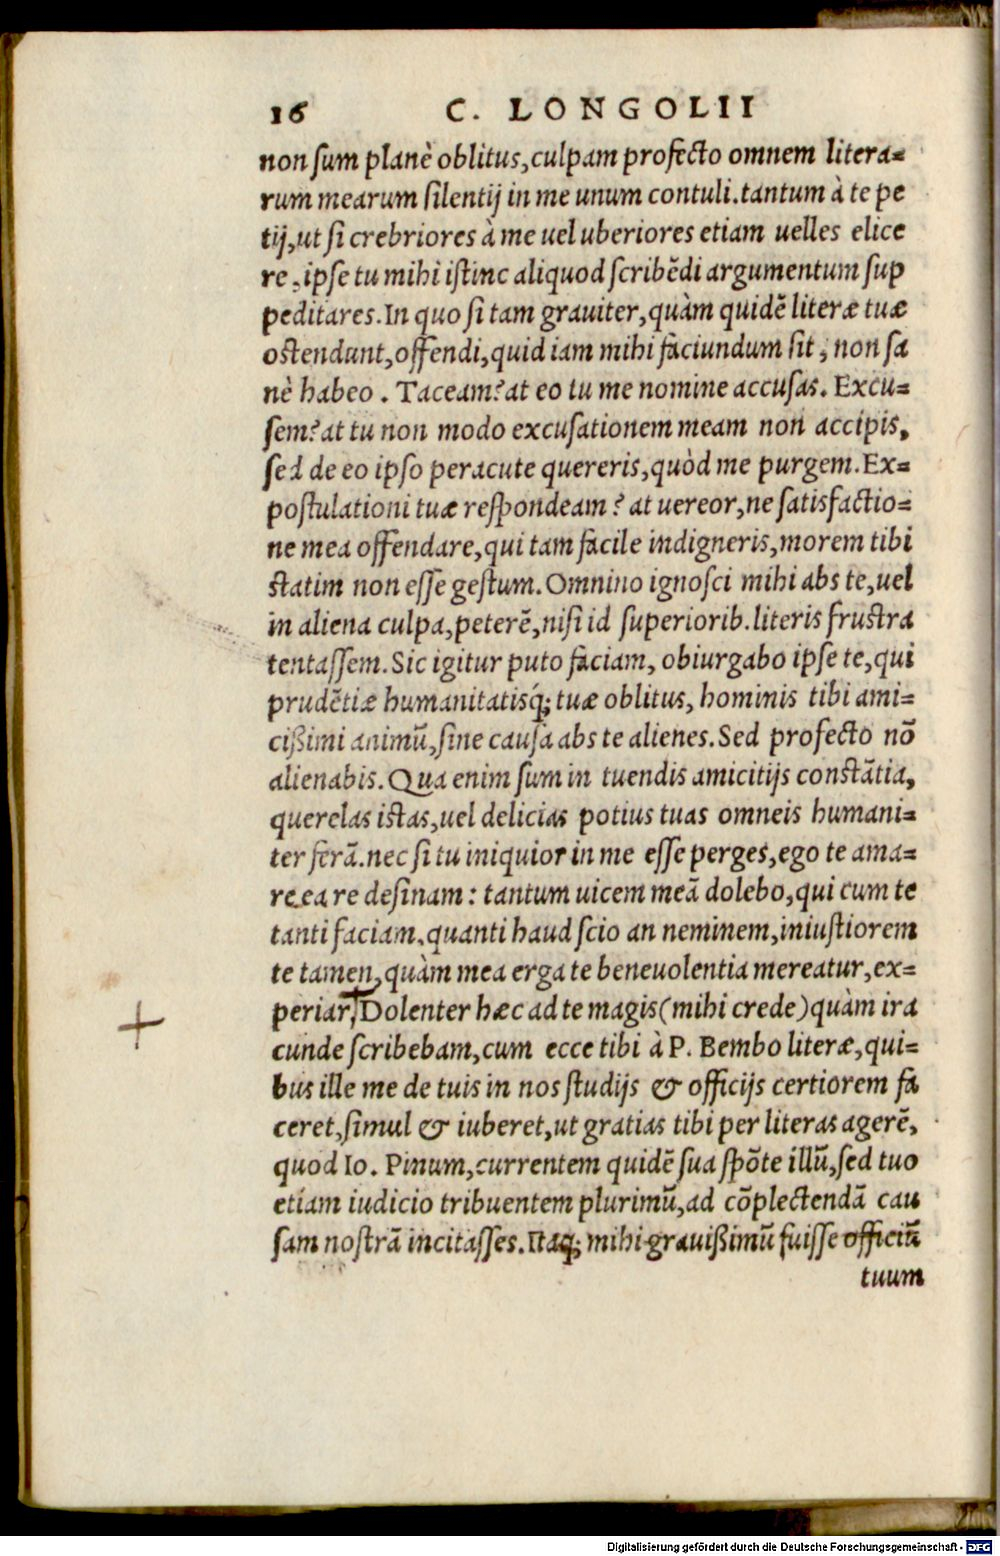 16 C. LONGOLII
non sum planè oblitus, culpam profecto omnem litera=
rum mearum silentij in me unum contuli. tantum à te pe
tij, ut si crebriores à me uel uberiores etiam uelles elice
re, ipse tu mihi istinc aliquod scribēdi argumentum sup
peditares. In quo si tam grauiter, quàm quidē literæ tuæ
ostendunt, offendi, quid iam mihi faciundum sit, non sa
nè habeo. Taceam? at eo tu me nomine accusas. Excu=
sem? at tu non modo excusationem meam non accipis,
sed de eo ipso peracute quereris, quòd me purgem. Ex=
postulationi tuæ respondeam? at uereor, ne satisfactio=
ne mea offendare, qui tam facile indigneris, morem tibi
statim non esse gestum. Omnino ignosci mihi abs te, uel
in aliena culpa, peterē, nisi id superiorib. literis frustra
tentassem. Sic igitur puto faciam, obiurgabo ipse te, qui
prudētiæ humanitatisq́; tuæ oblitus, hominis tibi ami=
cißimi animū, sine causa abs te alienes. Sed profecto nō
alienabis. Qua enim sum in tuendis amicitijs constātia,
querelas istas, uel delicias potius tuas omneis humani=
ter ferā. nec si tu iniquior in me esse perges, ego te ama=
re ea re desinam: tantum uicem meā dolebo, qui cum te
tanti faciam, quanti haud scio an neminem, iniustiorem
te tamen, quàm mea erga te beneuolentia mereatur, ex=
periar. Dolenter hæc ad te magis (mihi crede) quàm ira
cunde scribebam, cum ecce tibi à P. Bembo literæ, qui=
bus ille me de tuis in nos studijs & officijs certiorem fa
ceret, simul & iuberet, ut gratias tibi per literas agerē,
quod Io. Pinum, currentem quidē sua spōte illū, sed tuo
etiam iudicio tribuentem plurimū, ad cōplectendā cau
sam nostrā incitasses. Itaq; mihi grauißimū fuisse officiū
tuum
Digitalisierung gefördert durch die Deutsche Forschungsgemeinschaft - DFG